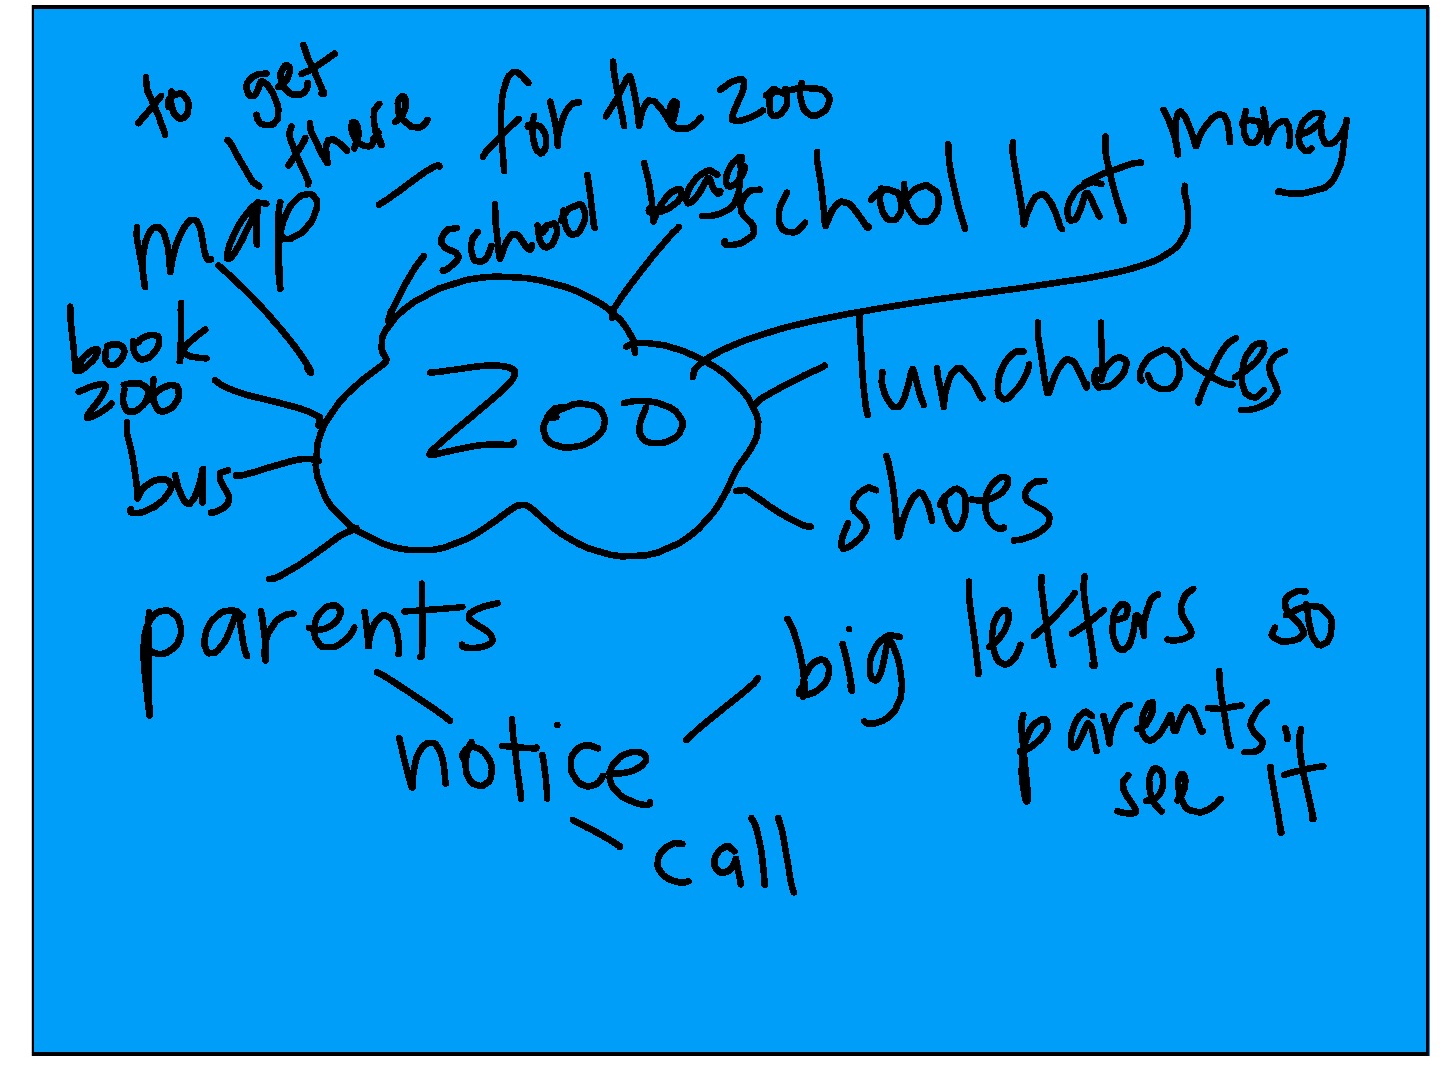 to get
there
for the zoo
money
map
school bag
school hat
book
zoo
Zoo
lunchboxes
bus
shoes
parents
big letters so
parents
see it
notice
call